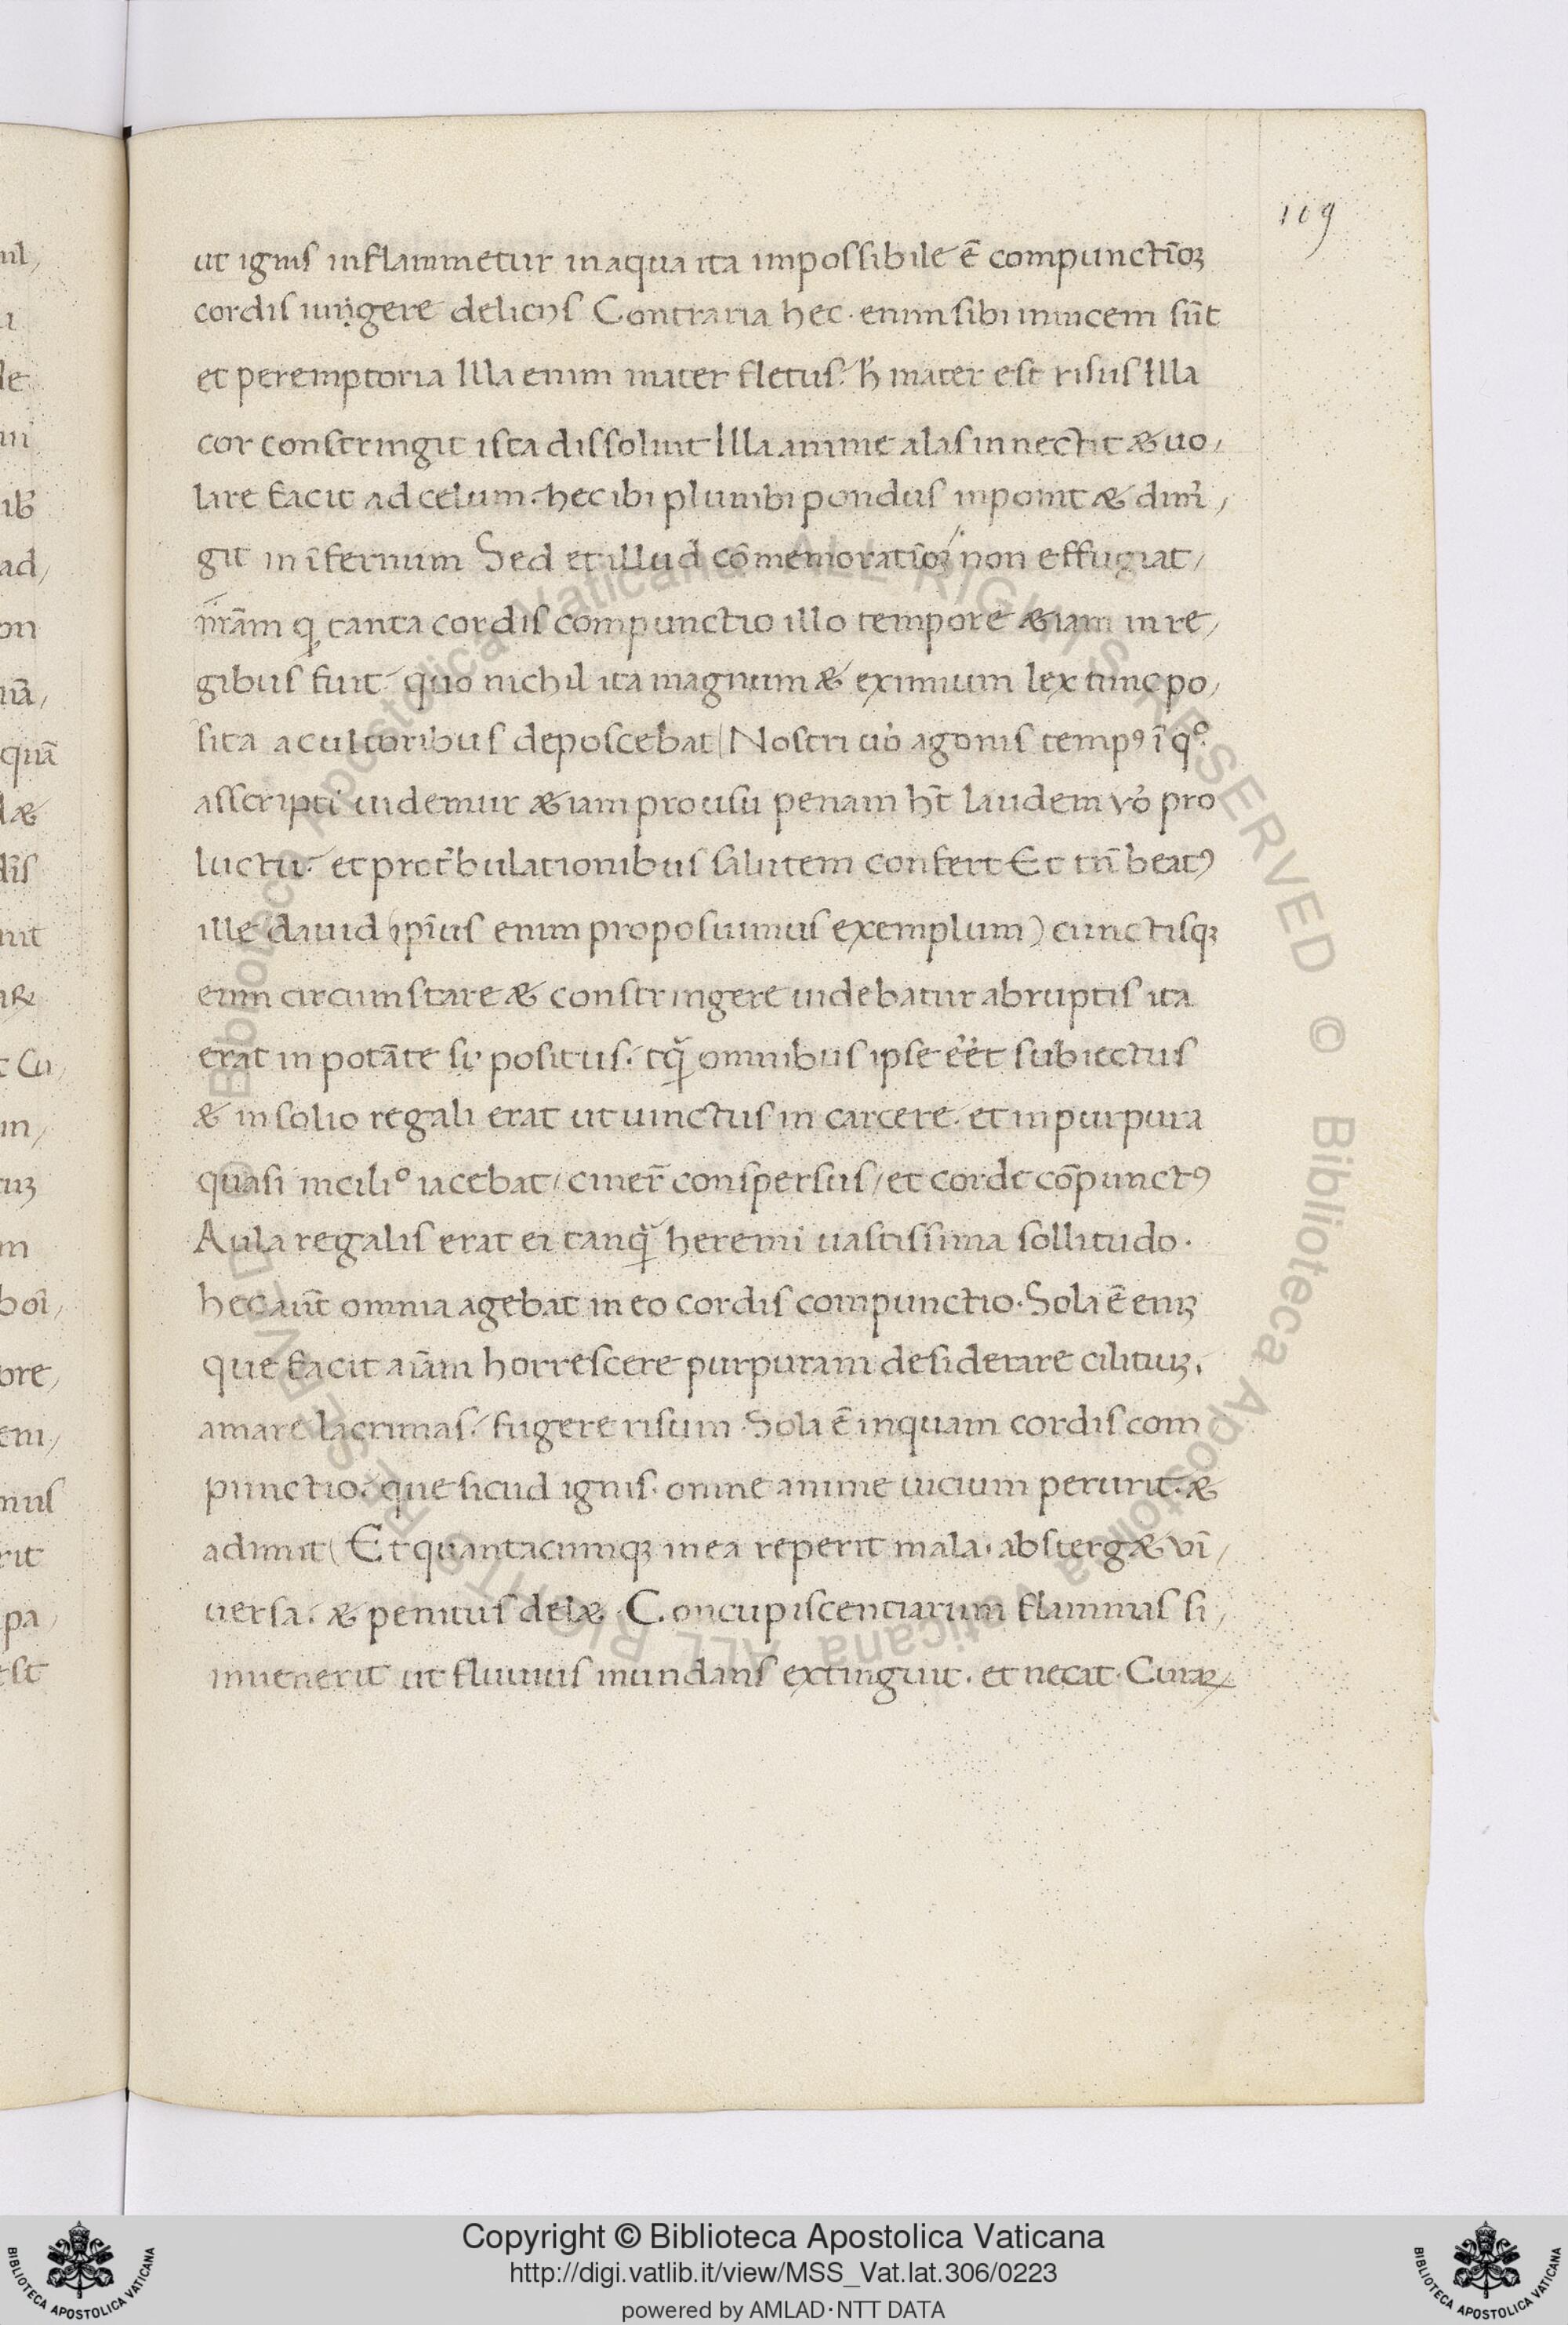 109
ut ignis inflammetur in aqua ita impossibile ē compunctīoꝫ
cordis iungere delicijs Contraria hec · enim sibi inuicem sūt
et peremptoria Illa enim mater fletus · h̄ mater est risus Illa
cor constringit ista dissoluit Illa anime alas innectit & uo/
lare facit ad celum · hec ibi plumbi pondus inponit & dim̄/
git in īfernum Sed et illud cōmemoratīoꝫ non effugiat/
nr̄am ꝙ tanta cordis compunctio illo tempore &iam in re/
gibus fuit · quo nichil ita magnum & eximium lex tunc po/
sita a cultoribus deposcebat ( Nostri uo̓ agonis tempꝰ ī qº ·
asscripti uidemur &iam pro usu penam hn̄t laudem vo̓ pro
luctu · et pro tͥbulationibus salutem confert Et tn̄ beatꝰ
ille dauid (ip̄ius enim proposuimus exemplum) cunctisqꝫ
eum circumstare & constringere uidebatur abruptis ita
erat in potāte su̓ positus · tqᷓ omnibus ipse e̓e̓t subiectus
& in solio regali erat ut uinctus in carcere · et in purpura
quasi in ciliº iacebat / ciner̄ conspersus / et corde cōpunctꝰ
Aula regalis erat ei tanqᷓ heremi uastissima sollitudo ·
hec aut̄ omnia agebat in eo cordis compunctio · Sola ē eniꝫ
que facit aīam horrescere purpuram desiderare cilitiuꝫ ·
amare lacrimas · fugere risum · Sola ē inquam cordis com
punctio · que sicud ignis · omne anime uicium perurit · &
adimit ( Et quantacumqꝫ in ea reperit mala · absterg& vī/
uersa · & penitus del& · Concupiscentiarum flammas si/
inuenerit ut fluuius mundans extinguit · et necat · Curaꝝ
Copyright © Biblioteca Apostolica Vaticana
http://digi.vatlib.it/view/MSS_Vat.lat.306/0223
powered by AMLAD·NTT DATA